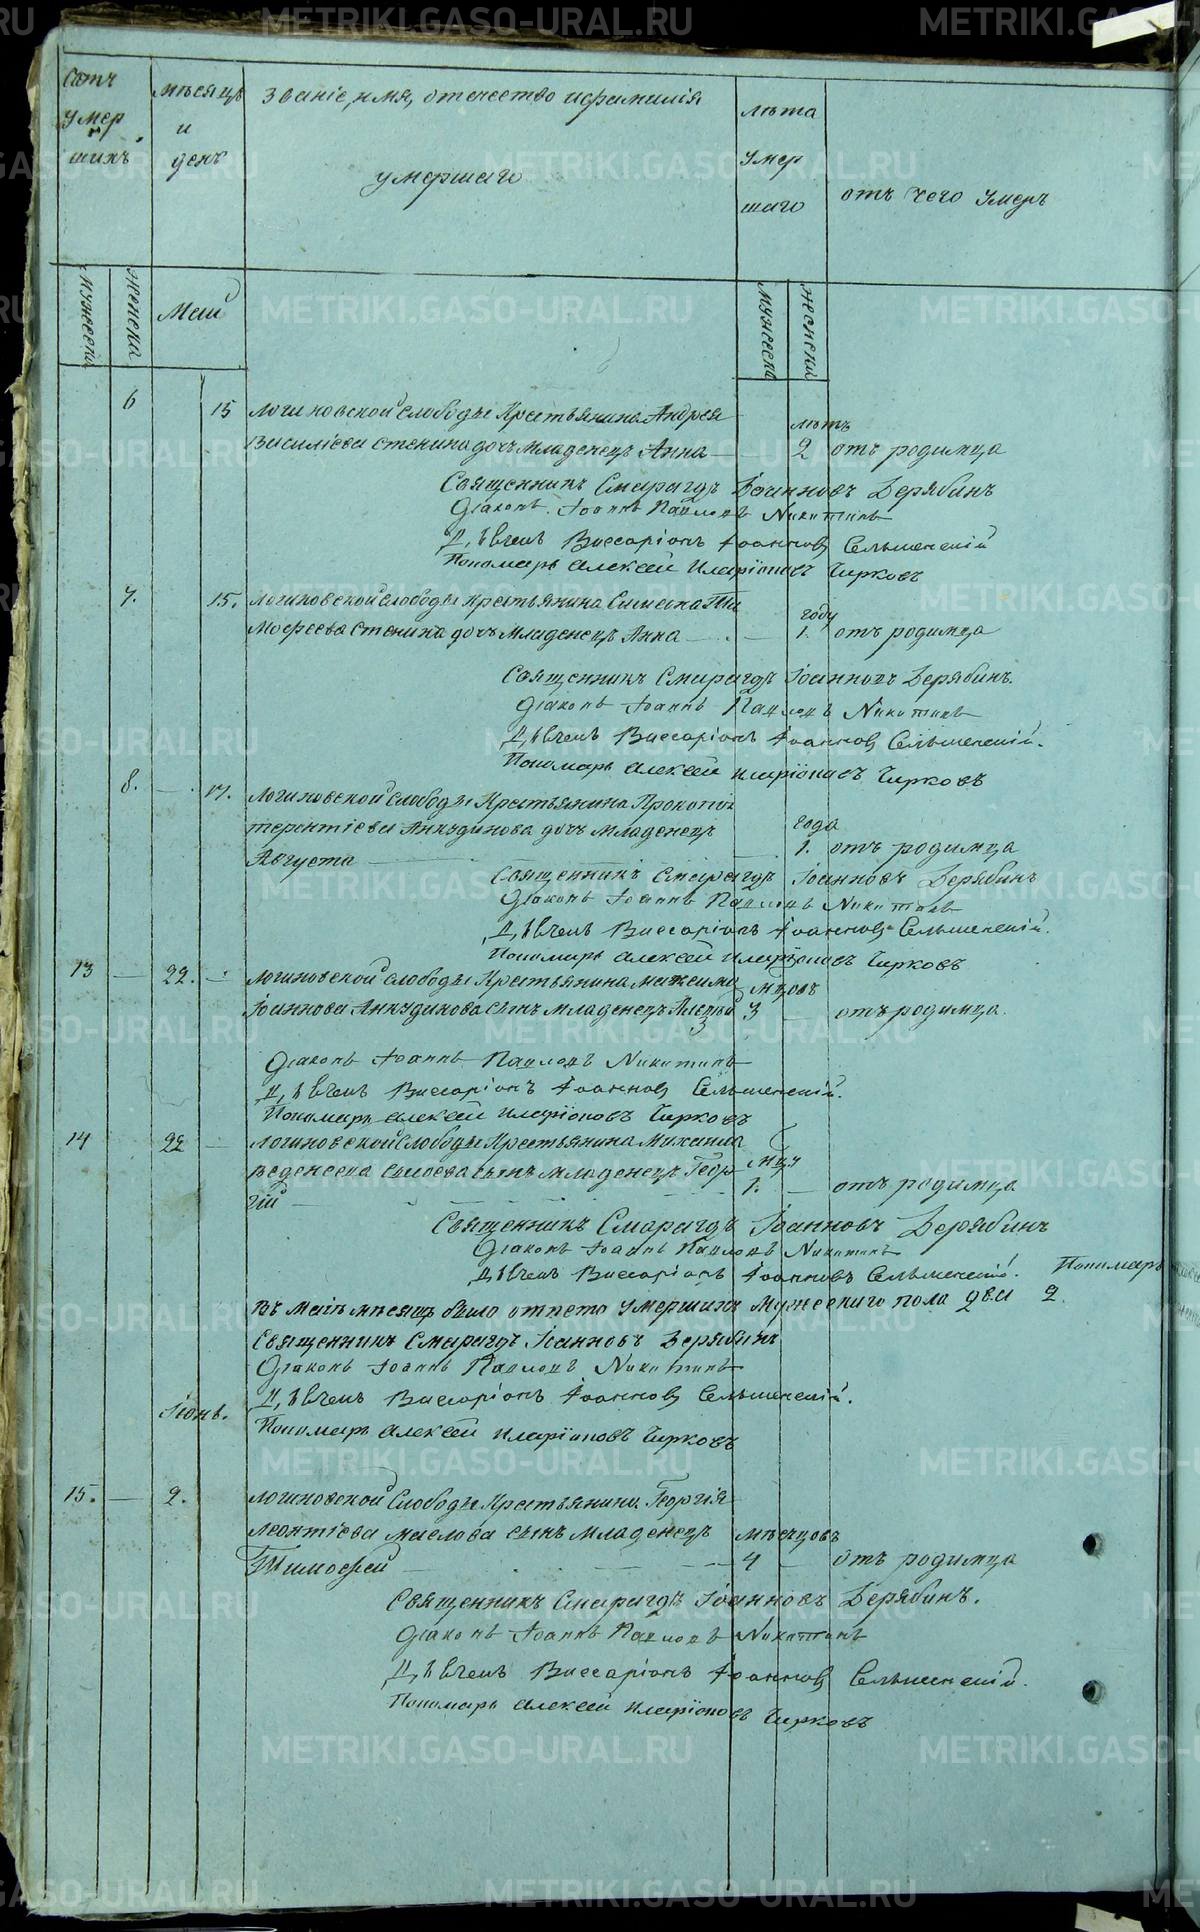 METRIKI.GASO-URAL.RU
Счетъ
умер
шихъ
мѣсяцъ
и
день
званіе, имя, отчество и фамилія
умершаго
лѣта
умер
шаго
отъ чего умеръ
мужеска
женска
Маій
мужеска
женска
6
15
Логиновской слободы Крестьянина Андрея
Василіева Стенина дочь младенецъ Анна
лѣтъ
2
отъ родимца
Священникъ Смарагдъ Іоанновъ Дерябинъ
Діаконъ Іоаннъ Павловъ Никитинъ
Дьячекъ Виссаріонъ Іоанновъ Сельменскій
Пономарь Алексей Иларіоновъ Чирковъ
7.
15.
Логиновской слободы Крестьянина Симеона Ти
мофеева Стенина дочь младенецъ Анна
году
1.
отъ родимца
Священникъ Смарагдъ Іоанновъ Дерябинъ.
Діаконъ Іоаннъ Павловъ Никитинъ
Дьячекъ Виссаріонъ Іоанновъ Сельменскій.
Пономарь Алексей Иларіоновъ Чирковъ
8.
17.
Логиновской слободы Крестьянина Прокопія
Терентіева Анкудинова дочь младенецъ
Августа
года
1.
отъ родимца
Священникъ Смарагдъ Іоанновъ Дерябинъ
Діаконъ Іоаннъ Павловъ Никитинъ
Дьячекъ Виссаріонъ Іоанновъ Сельменскій.
Пономарь Алексей Иларіоновъ Чирковъ
13
22.
Логиновской слободы Крестьянина Максима
Іоаннова Анкудинова сынъ младенецъ
мѣцовъ
3
отъ родимца.
Діаконъ Іоаннъ Павловъ Никитинъ
Дьячекъ Виссаріонъ Іоанновъ Сельменскій.
Пономарь Алексей Иларіоновъ Чирковъ
14
22
Логиновской слободы Крестьянина Михаила
сынъ младенецъ Геор
гій
мѣцу
1.
отъ родимца
Священникъ Смарагдъ Іоанновъ Дерябинъ
Діаконъ Іоаннъ Павловъ Никитинъ
Дьячекъ Виссаріонъ Іоанновъ Сельменскій.
Пономарь
Въ Маіѣ мѣсяцѣ было отпето умершихъ мужескаго пола два 2.
Священникъ Смарагдъ Іоанновъ Дерябинъ
Діаконъ Іоаннъ Павловъ Никитинъ
Дьячекъ Виссаріонъ Іоанновъ Сельменскій.
Іюнь.
Пономарь Алексей Иларіоновъ Чирковъ
15.
2.
Логиновской Слободы Крестьянина Георгія
Леонтіева Маслова сынъ младенецъ
Тимофей
мѣсяцовъ
4
отъ родимца
Священникъ Смарагдъ Іоанновъ Дерябинъ.
Діаконъ Іоаннъ Павловъ Никитинъ
Дьячекъ Виссаріонъ Іоанновъ Сельменскій.
Пономарь Алексей Иларіоновъ Чирковъ